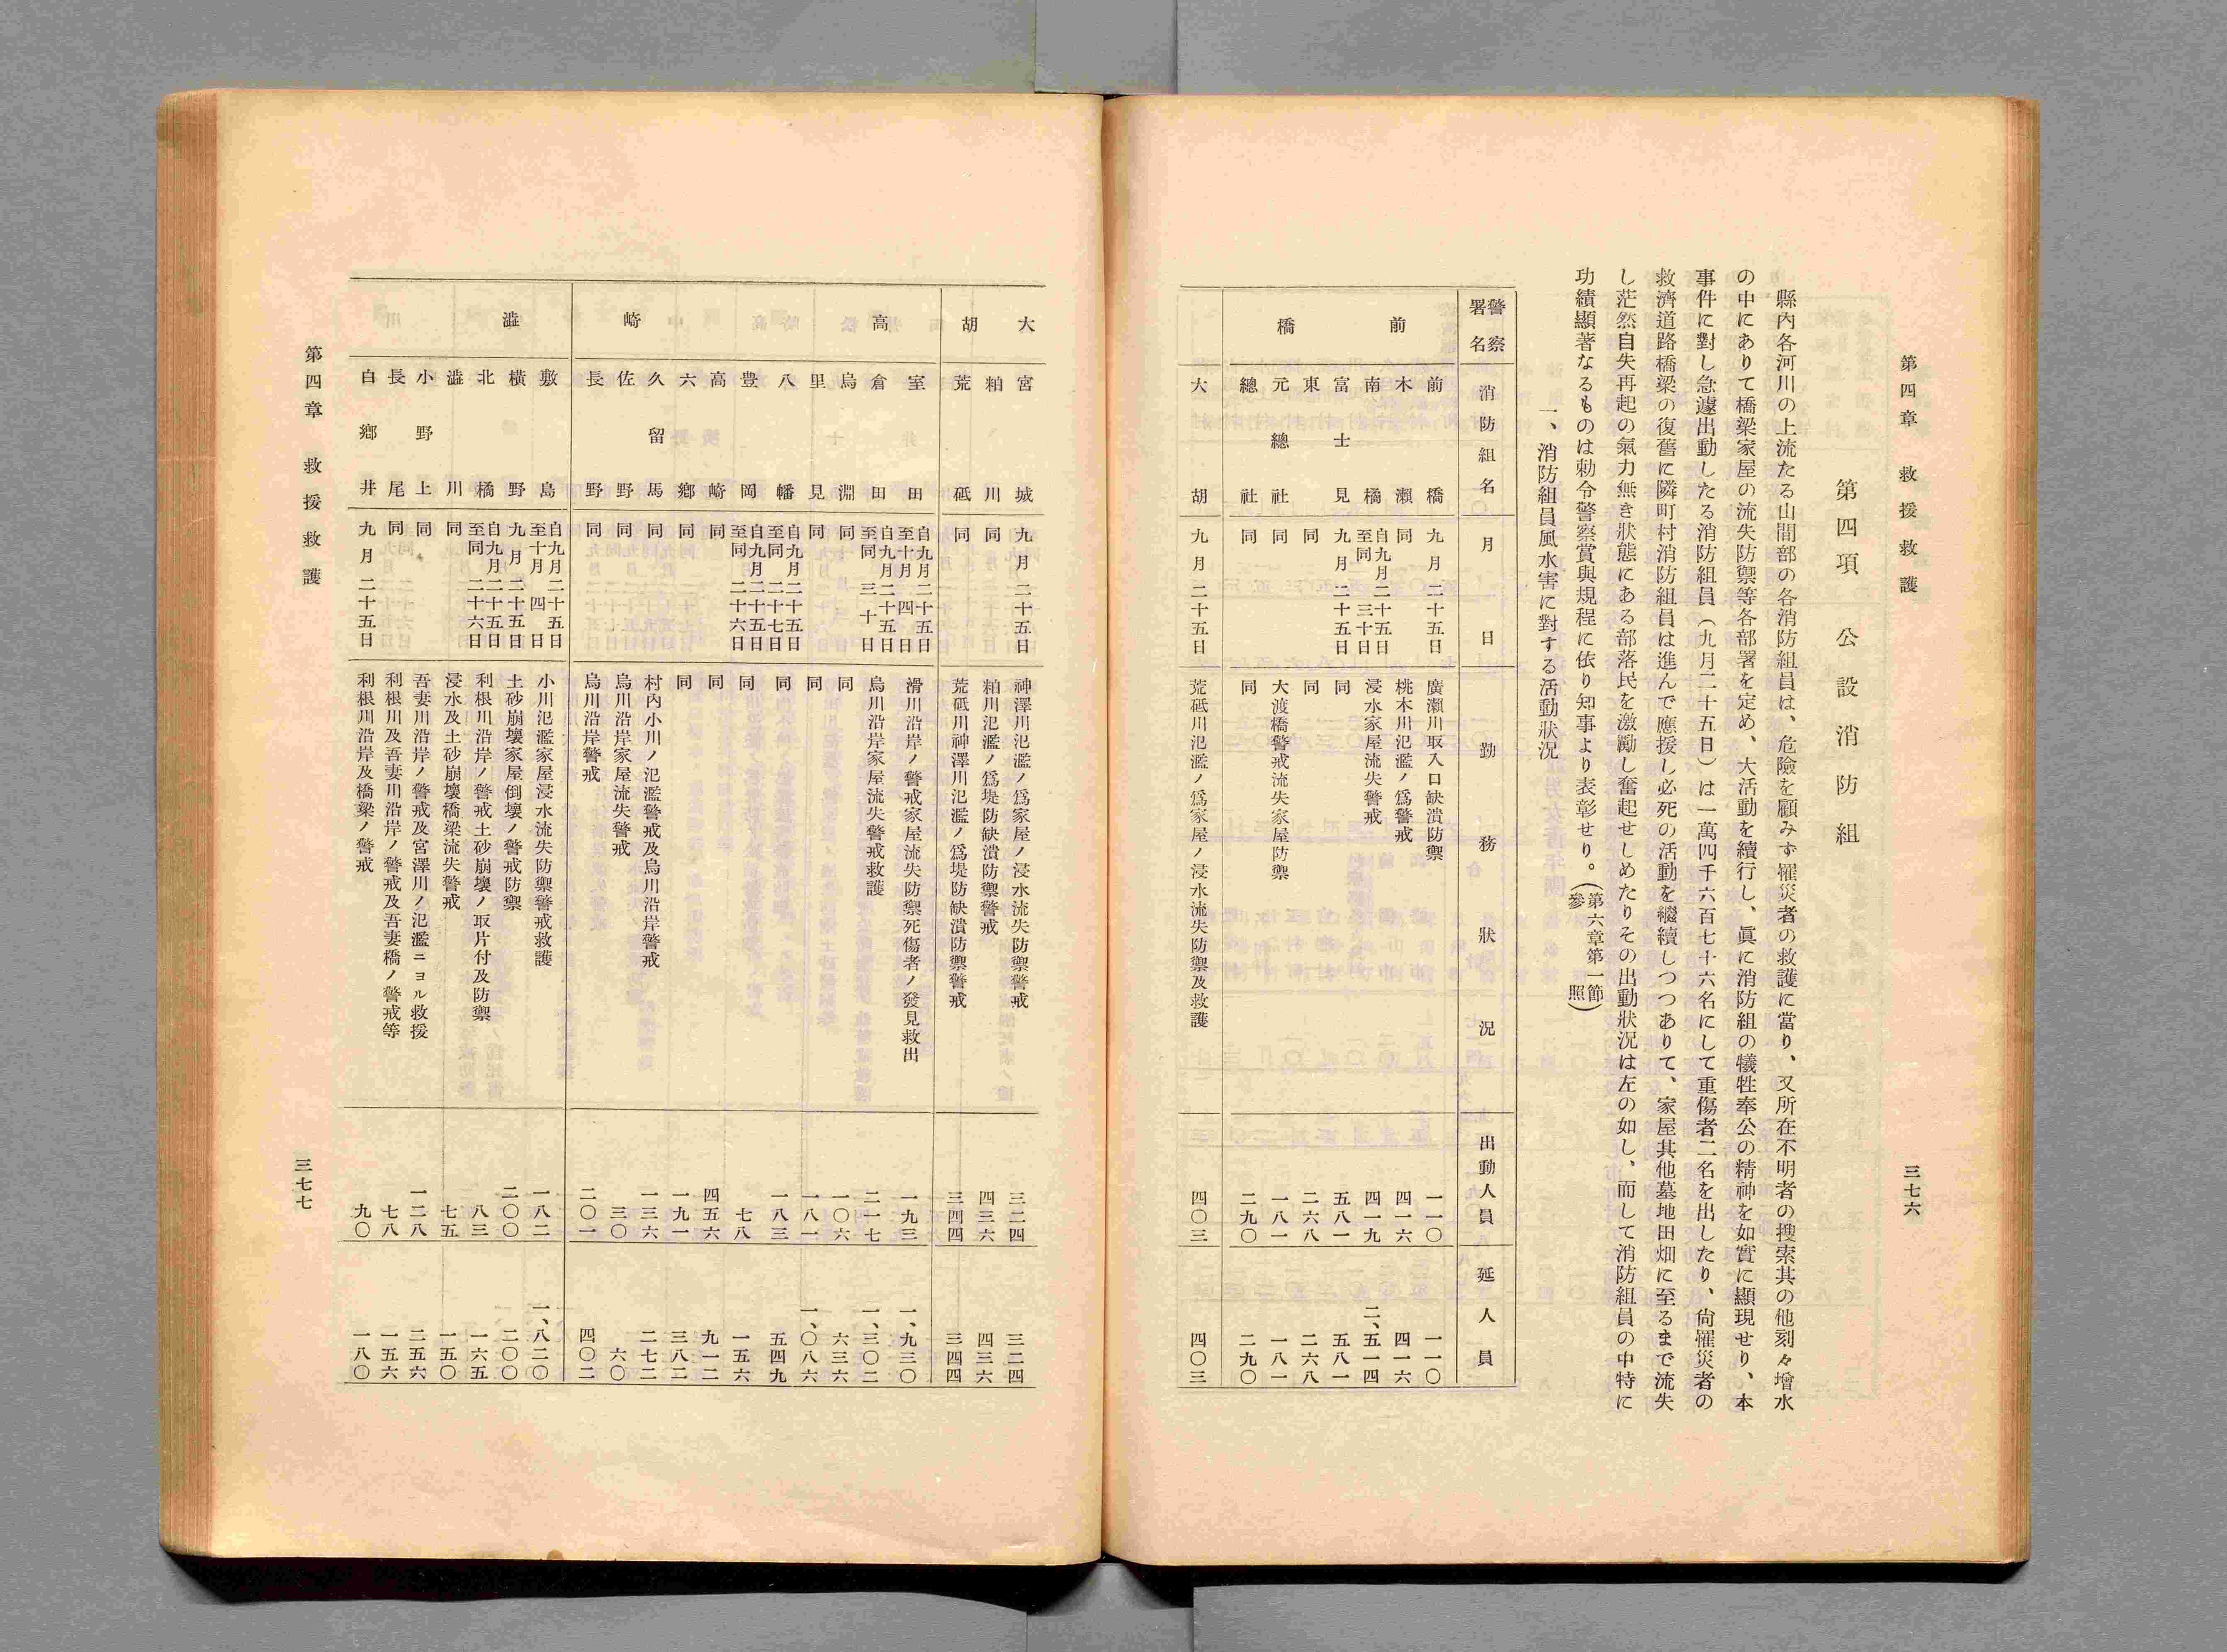 第四章　救援救護
三七六
第四項　公設消防組
縣內各河川の上流たる山間部の各消防組員は、危險を顧みず罹災者の救護に當り、又所在不明者の搜索其の他刻々增水
の中にありて橋梁家屋の流失防禦等各部署を定め、大活動を續行し、眞に消防組の犠牲奉公の精神を如實に顯現せり、本
事件に對し急遽出動したる消防組員（九月二十五日）は一萬四千六百七十六名にして重傷者二名を出したり、尙罹災者の
救濟道路橋梁の復舊に隣町村消防組員は進んで應援し必死の活動を繼續しつつありて、家屋其他墓地田畑に至るまで流失
し茫然自失再起の氣力無き狀態にある部落民を激勵し奮起せしめたりその出動狀況は左の如し、而して消防組員の中特に
功績顯著なるものは勅令警察賞與規程に依り知事より表彰せり。（第六章第一節參照）
一、消防組員風水害に對する活動狀況
警察署名　消防組名　月日　勤務狀況　出動人員　延人員
前橋　前橋　九月二十五日　廣瀨川取入口缺潰防禦　一一〇　一一〇
木瀨　同　桃木川氾濫ノ爲警戒　四一六　四一六
南橘　自九月二十五日至同三十日　浸水家屋流失警戒　四一九　二、五一四
富士見　九月二十五日　同　五八一　五八一
東　同　同　二六八　二六八
元總社　同　大渡橋警戒流失家屋防禦　一八一　一八一
總社　同　同　二九〇　二九〇
大胡　九月二十五日　荒砥川氾濫ノ爲家屋ノ浸水流失防禦及救護　四〇三　四〇三
大胡　宮城　九月二十五日　神澤川氾濫ノ爲家屋ノ浸水流失防禦警戒　三二四　三二四
粕川　同　粕川氾濫ノ爲堤防缺潰防禦警戒　四三六　四三六
荒砥　同　荒砥川神澤川氾濫ノ爲堤防缺潰防禦警戒　三四四　三四四
高崎　室田　自九月二十五日至十月四日　滑川沿岸ノ警戒家屋流失防禦死傷者ノ發見救出　一九三　一、九三〇
倉田　自九月二十五日至同三十日　烏川沿岸家屋流失警戒救護　二一七　一、三〇二
烏淵　同　同　一〇六　六三六
里見　同　同　一八一　一、〇八六
八幡　自九月二十五日至同二十七日　同　一八三　五四九
豊岡　自九月二十五日至同二十六日　同　七八　一五六
高崎　同　同　四五六　九一二
六鄕　同　同　一九一　三八二
久留馬　同　村內小川ノ氾濫警戒及烏川沿岸警戒　一三六　二七二
佐野　同　烏川沿岸家屋流失警戒　三〇　六〇
長野　同　烏川沿岸警戒　二〇一　四〇二
澁川　敷島　自九月二十五日至十月四日　小川氾濫家屋浸水流失防禦警戒救護　一八二　一、八二〇
橫野　九月二十五日　土砂崩壞家屋倒壞ノ警戒防禦　二〇〇　二〇〇
北橘　自九月二十五日至同二十六日　利根川沿岸ノ警戒土砂崩壞ノ取片付及防禦　八三　一六五
澁川　同　浸水及土砂崩壞橋梁流失警戒　七五　一五〇
小野上　同　吾妻川沿岸ノ警戒及宮澤川ノ氾濫ニヨル救援　一二八　二五六
長尾　同　利根川及吾妻川沿岸ノ警戒及吾妻橋ノ警戒等　七八　一五六
白鄕井　九月二十五日　利根川沿岸及橋梁ノ警戒　九〇　一八〇
第四章　救援救護
三七七